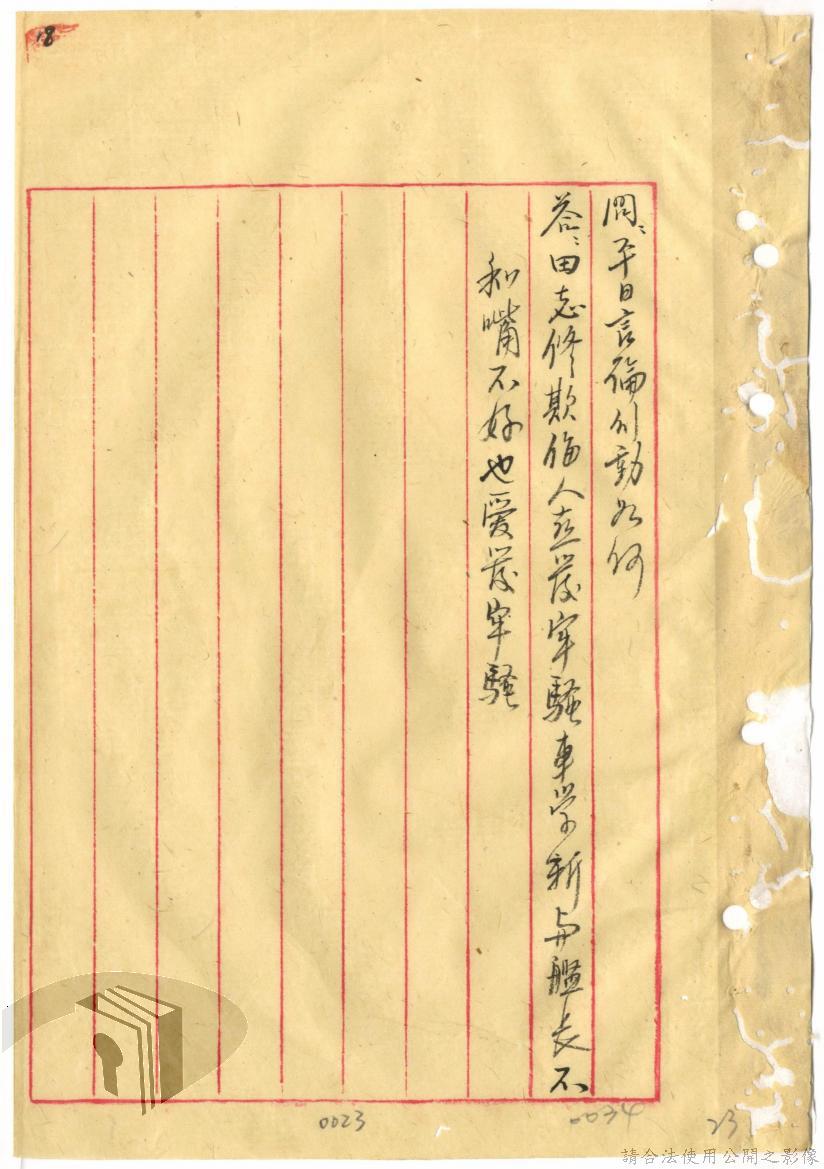 18
問:平日言論行動如何
答:田志修欺侮人喜发牢騷車学新与艦長不
和嘴不好也愛发牢騷
0023
0034
23
請合法使用公開之影像